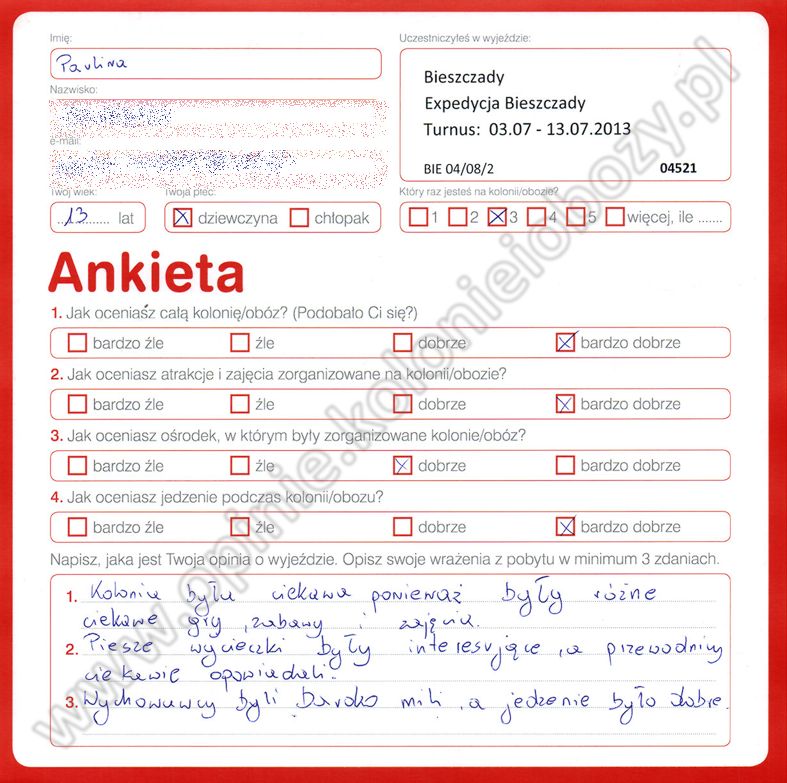 Imię:
Uczestniczyłeś w wyjeździe:
Paulina
Bieszczady
Expedycja Bieszczady
Turnus: 03.07 - 13.07.2013
BIE 04/08/2 04521
Nazwisko:
e-mail:
Twój wiek:
Twoja płeć:
Który raz jesteś na kolonii/obozie?
13 lat
dziewczyna chłopak
1 2 3 4 5 więcej, ile .......
Ankieta
1. Jak oceniasz całą kolonię/obóz? (Podobało Ci się?)
bardzo źle źle dobrze bardzo dobrze
2. Jak oceniasz atrakcje i zajęcia zorganizowane na kolonii/obozie?
bardzo źle źle dobrze bardzo dobrze
3. Jak oceniasz ośrodek, w którym były zorganizowane kolonie/obóz?
bardzo źle źle dobrze bardzo dobrze
4. Jak oceniasz jedzenie podczas kolonii/obozu?
bardzo źle źle dobrze bardzo dobrze
Napisz, jaka jest Twoja opinia o wyjeździe. Opisz swoje wrażenia z pobytu w minimum 3 zdaniach.
1. Kolonia była ciekawa ponieważ były różne
ciekawe gry, zabawy i zajęcia.
2. Piesze wycieczki były interesujące, a przewodnicy
ciekawie opowiadali.
3. Wychowawcy byli bardzo mili, a jedzenie było dobre.
www.opinie.kolonieiobozy.pl